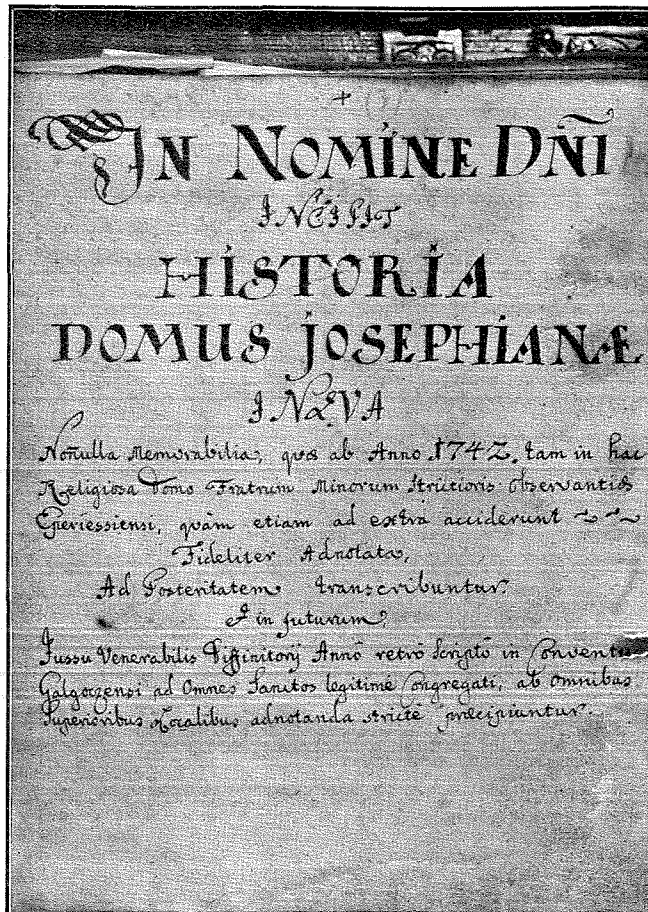 +
IN NOMINE DÑI
INCIPIT
HISTORIA
DOMUS JOSEPHIANÆ
IN QVA
Noñulla Memorabilia, quæ ab Anno 1742. tam in hac
Religiosa Domo Fratrum Minorum Strictioris Observantiæ
Eperiessiensi, quàm etiam ad extra acciderunt ~ ~
Fideliter Adnotata,
Ad Posteritatem transcribuntur:
et in futurum,
Jussu Venerabilis Diffinitorij Annô retrô Scriptô in Conventu
Galgoczensi ad Omnes Sanctos legitimè Congregati, ab omnibus
Superioribus localibus adnotanda strictè præcipiuntur.